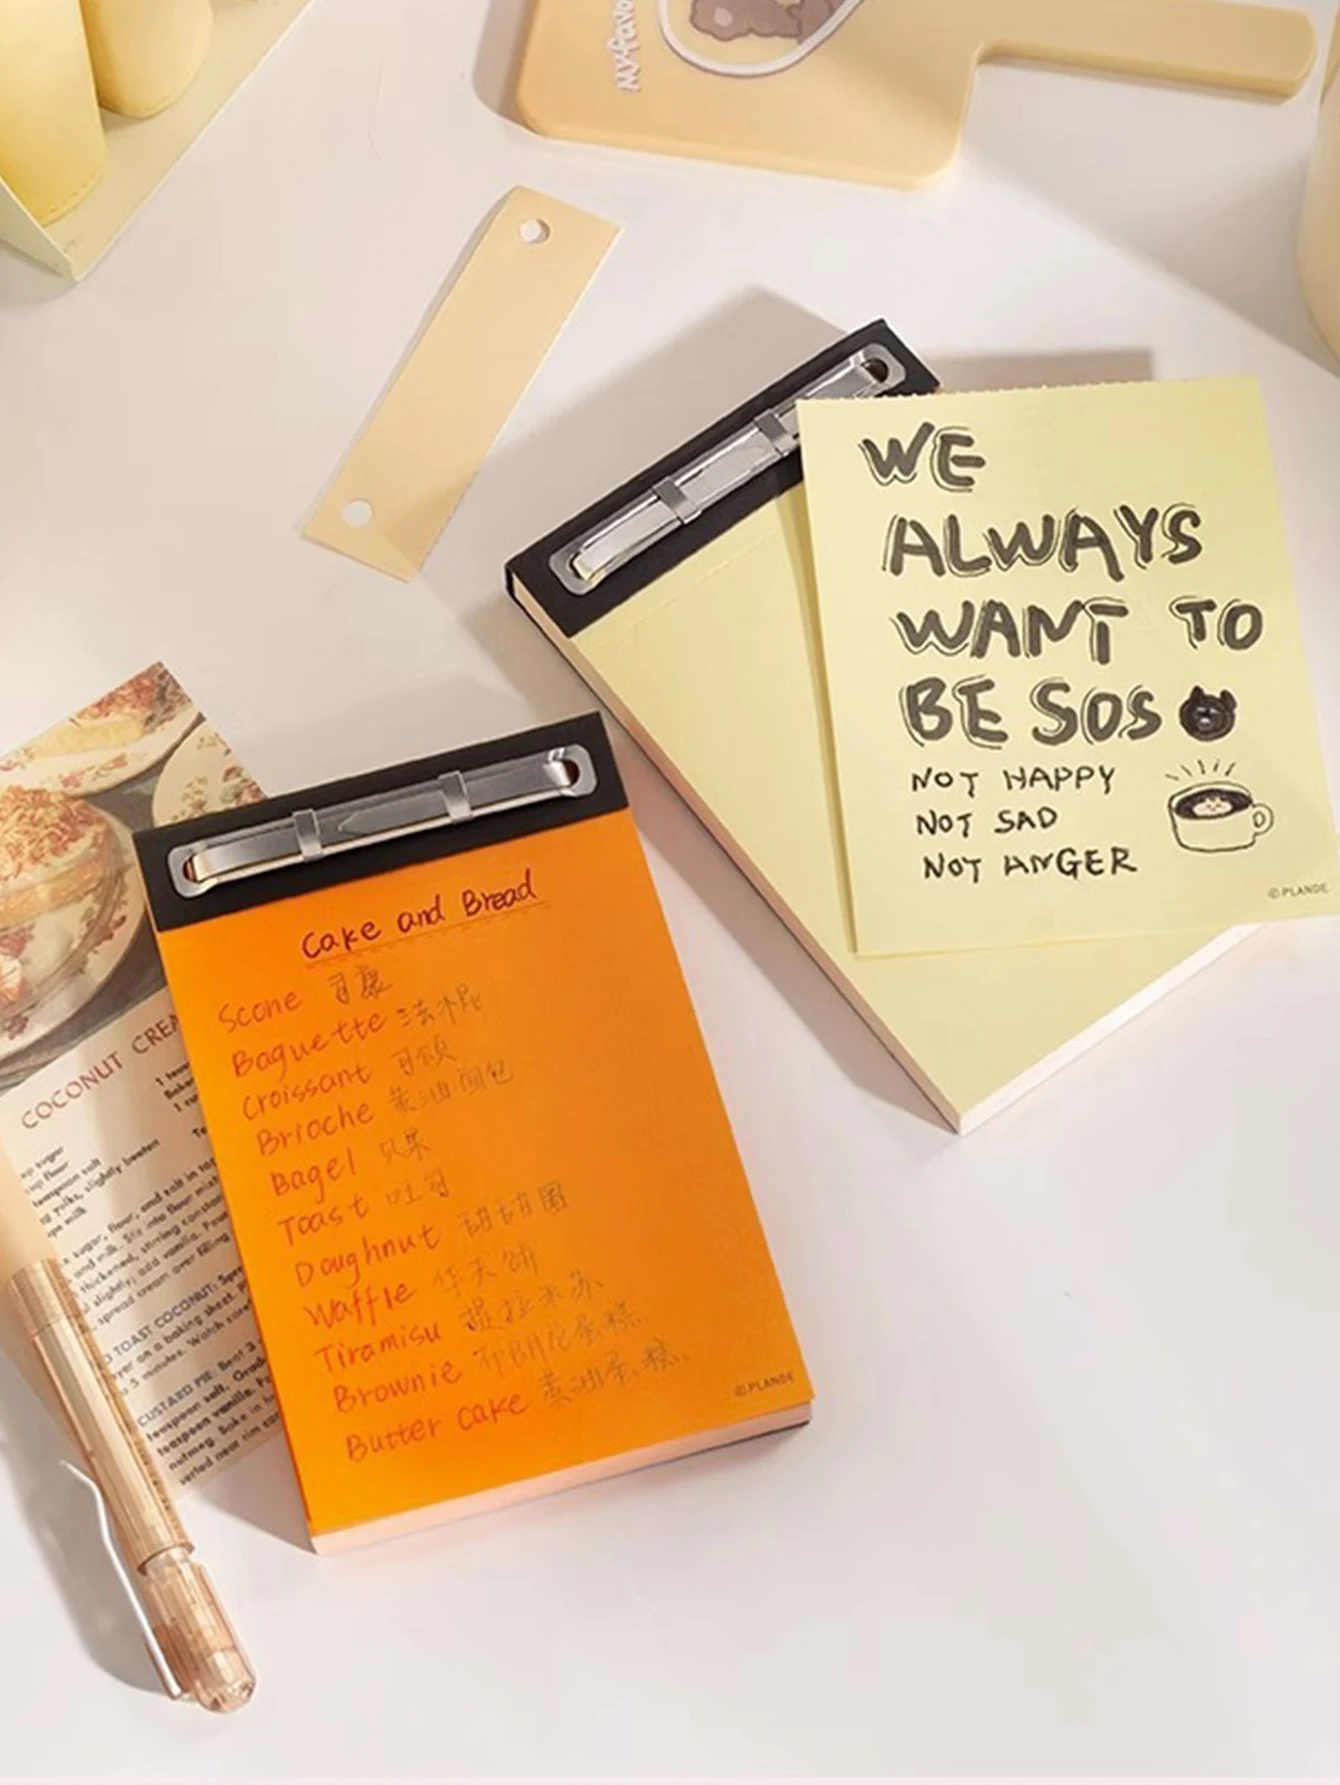 My favo
WE
ALWAYS
WANT TO
BE SOS
NOT HAPPY
NOT SAD
NOT ANGER
©PLANDE
Cake and Bread
Scone 司康
Baguette 法棍
Croissant 可颂
Brioche 黄油面包
Bagel 贝果
Toast 吐司
Doughnut 甜甜圈
Waffle 华夫饼
Tiramisu 提拉米苏
Brownie 布朗尼蛋糕
Butter cake 黄油蛋糕
©PLANDE
COCONUT CREA
1 teas
Bake
1 cu
Te
up sugar
up flour
teaspoon salt
yolks, slightly beaten
ps milk
sugar, flour, and salt in to
and milk. Stir into flour mixt
thickened, stirring constan
slightly; add vanilla. Pour
spread cream over filling
TOAST COCONUT: Spre
ver on a baking sheet.
5 minutes. Watch care
CUSTARD PIE: Beat 3
teaspoon salt. Grad
teaspoon vanilla.
nutmeg. Bake in
serted near rim